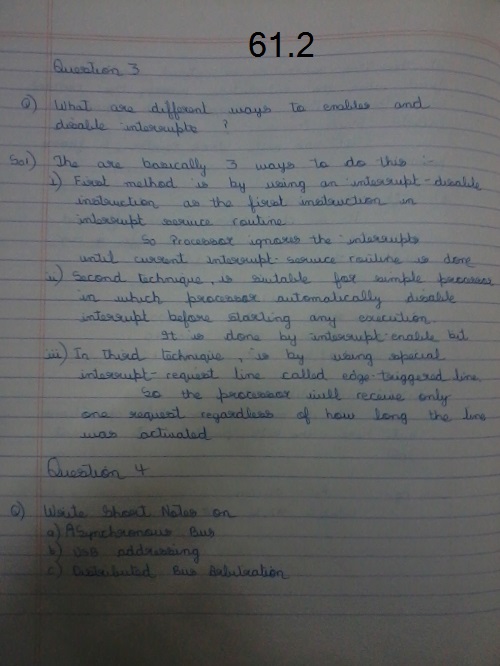 61.2
Question 3
Q) What are different ways to enables and
disable interrupts ?
Sol) The are basically 3 ways to do this :-
i) First method is by using an interrupt-disable
instruction as the first instruction in
interrupt service routine
So Processor ignores the interrupts
until current interrupt-service routine is done
ii) Second technique, is suitable for simple processor
in which processor automatically disable
interrupt before starting any execution.
It is done by interrupt-enable bit
iii) In third technique, is by using special
interrupt-request line called edge-triggered line
So the processor will receive only
one request regardless of how long the line
was activated
Question 4
Q) Write Short Notes on
a) ASynchronous Bus
b) USB addressing
c) Distributed Bus Arbitration